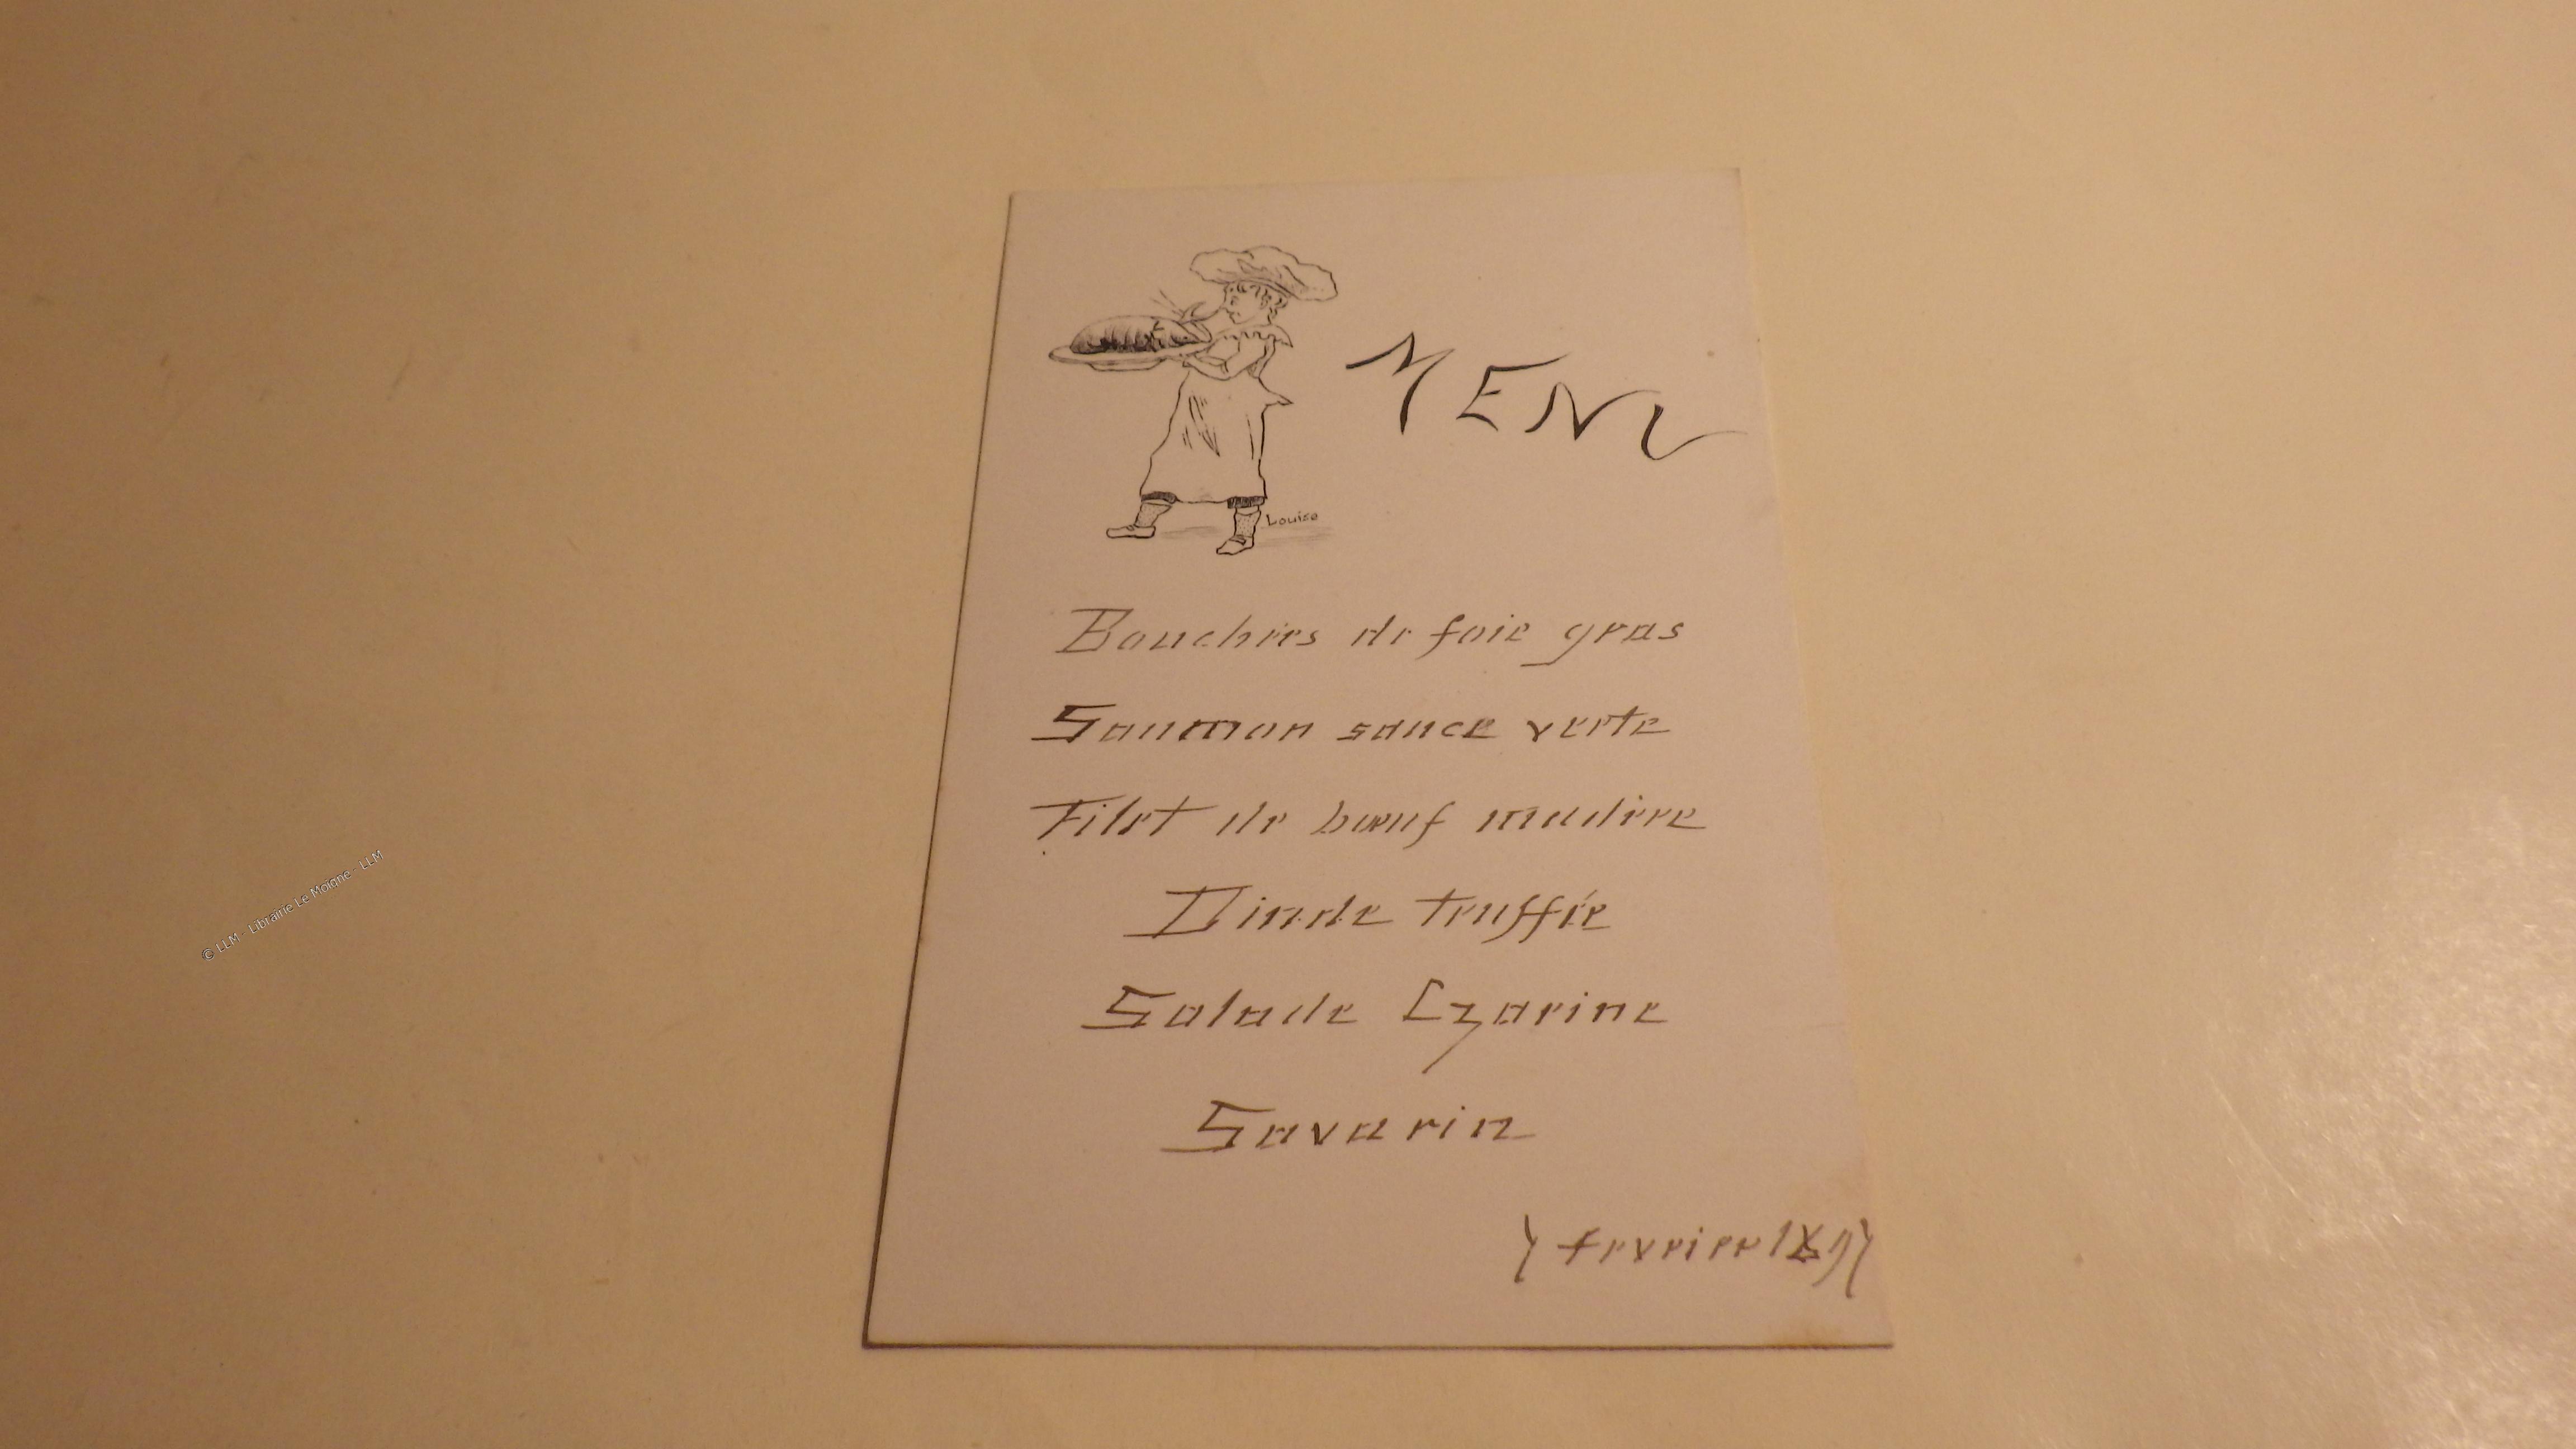 MENU
Louise
Bouchées de foie gras
Saumon sauce verte
Filet de bœuf madère
Dinde truffée
Salade Czarine
Savarin
7 fevrier 1897
© LLM - Librairie Le Moigne - LLM